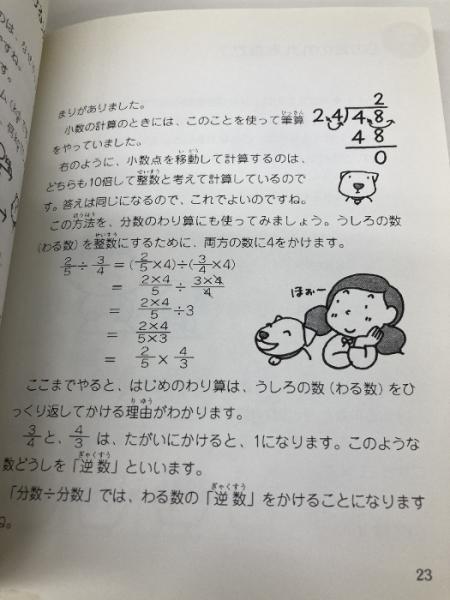 まりがありました。
小数の計算のときには、このことを使って筆算
をやっていました。
右のように、小数点を移動して計算するのは、
どちらも10倍して整数と考えて計算しているので
す。答えは同じになるので、これでよいのですね。
この方法を、分数のわり算にも使ってみましょう。うしろの数
(わる数)を整数にするために、両方の数に4をかけます。
2/5 ÷ 3/4 = (2/5 ×4)÷(3/4 ×4)
= 2×4/5 ÷ 3×4/4
= 2×4/5 ÷3
= 2×4/5×3
= 2/5 × 4/3
2
2.4)4.8
4 8
0
ほぉー
ここまでやると、はじめのわり算は、うしろの数(わる数)をひ
っくり返してかける理由がわかります。
3/4 と、4/3 は、たがいにかけると、1になります。このような
数どうしを「逆数」といいます。
「分数÷分数」では、わる数の「逆数」をかけることになります
ね。
23